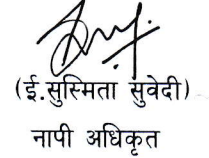 (ई.सुस्मिता सुवेदी)
नापी अधिकृत